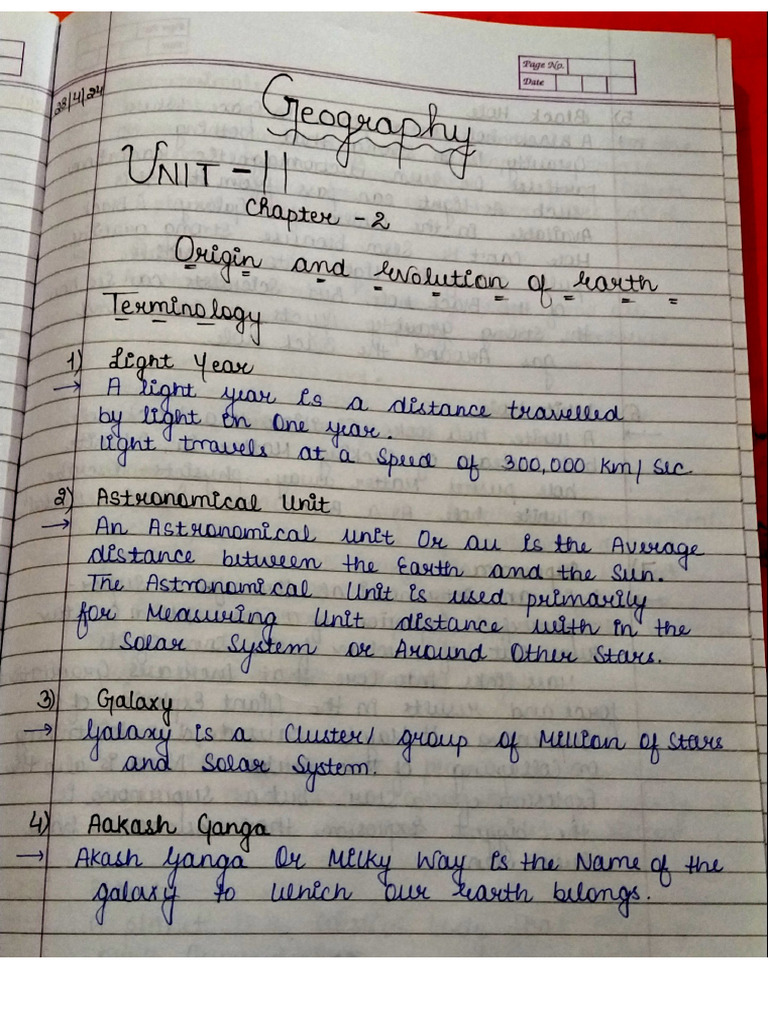 Page No.
Date
28/4/24
Geography
UNIT - II
Chapter - 2
Origin and evolution of earth
Terminology
1) Light Year
→ A light year is a distance travelled
by light in one year.
light travels at a speed of 300,000 km/sec
2) Astronomical Unit
→ An Astronomical unit Or au is the Average
distance between the Earth and the Sun.
The Astronomical Unit is used primarily
for Measuring Unit distance with in the
Solar System or Around Other Stars.
3) Galaxy
→ Galaxy is a Cluster/group of Million of stars
and Solar System.
4) Aakash Ganga
→ Akash Ganga Or Milky Way is the Name of the
galaxy to which our earth belongs.